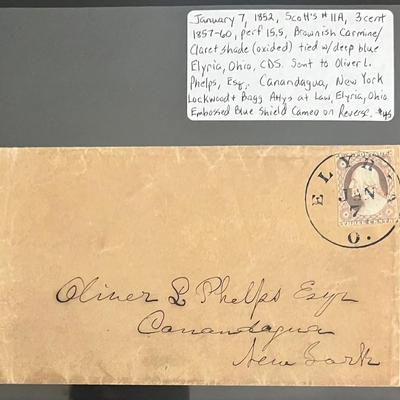 January 7, 1852, Scott's #11A, 3cent
1857-60, perf 15.5, Brownish Carmine/
Claret shade (oxided) tied w/deep blue
Elyria, Ohio, CDS. Sent to Oliver L.
Phelps, Esq., Canandagua, New York
Lockwood + Bagg Attys at Law, Elyria, Ohio
Embossed Blue Shield Cameo on Reverse. $45
ELYRIA
JAN
7
O.
THREE CENTS
Oliver L Phelps Esqr
Canandagua
New York